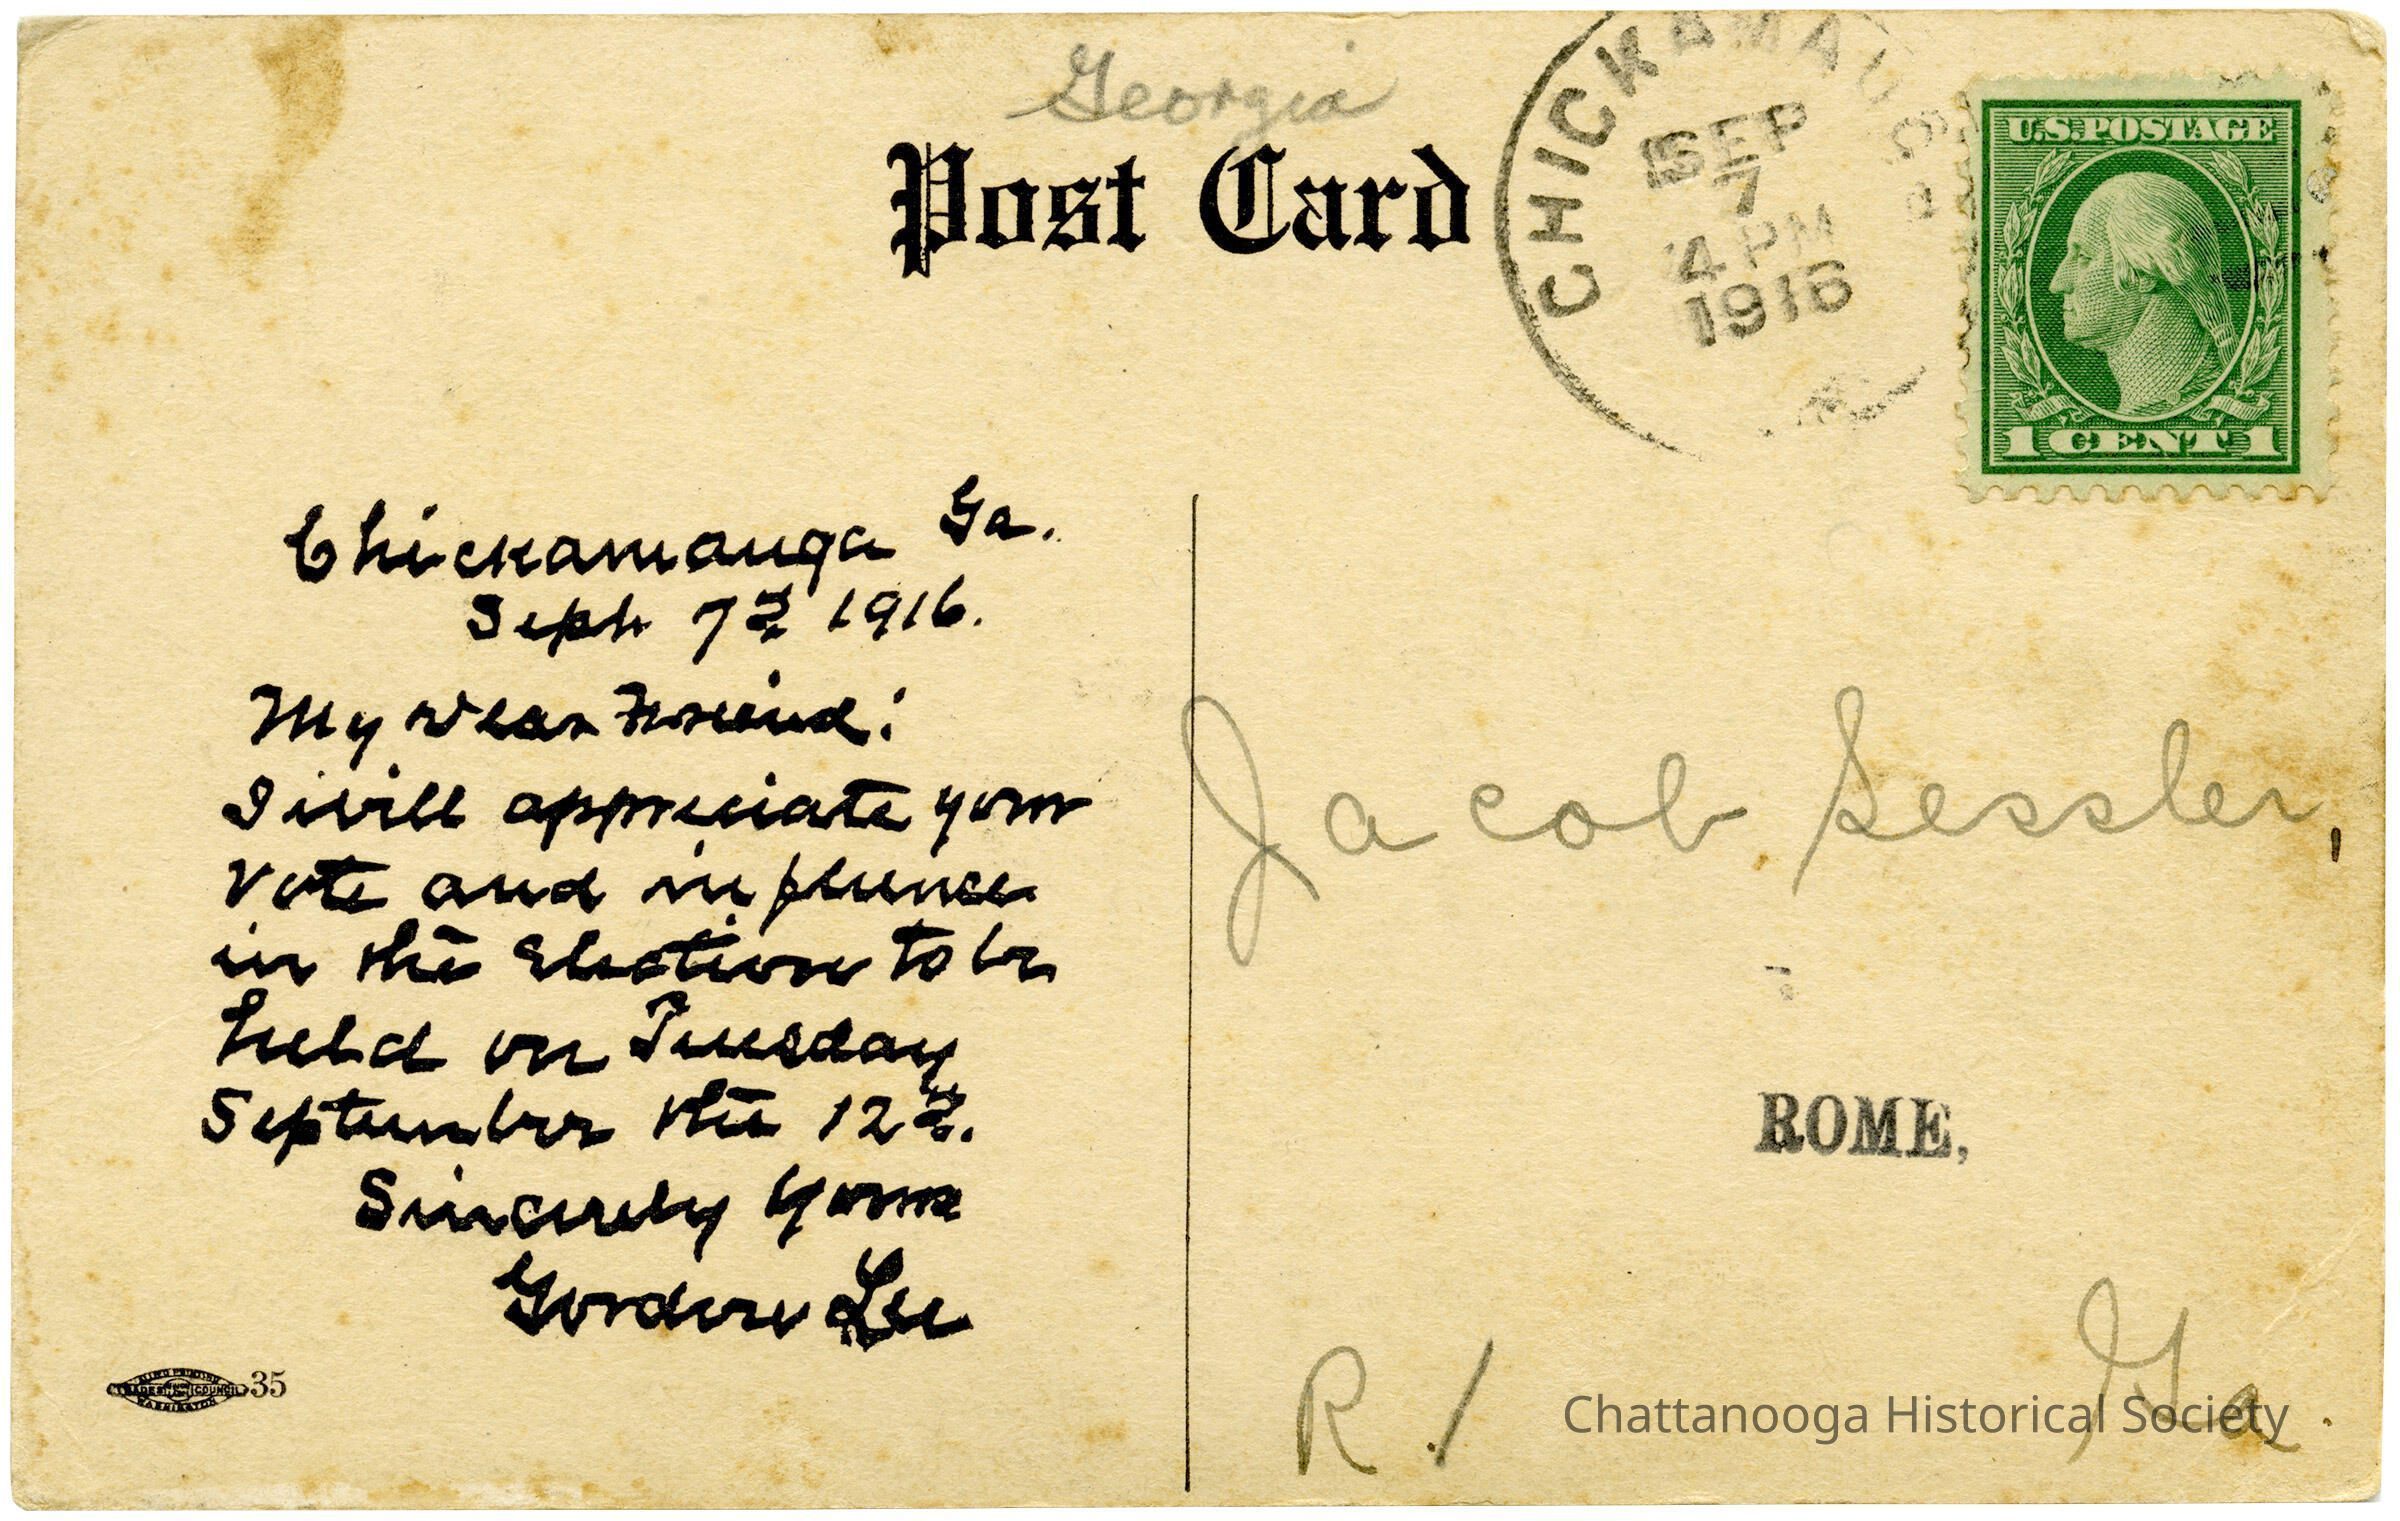 Georgia
Post Card
CHICKAMAUGA
SEP
7
4 PM
1916
U.S. POSTAGE
1 CENT 1
Chickamauga Ga.
Sept. 7th 1916.
My dear Friend:
I will appreciate your
vote and influence
in the election to be
held on Tuesday
September the 12th.
Sincerely Yours
Gordon Lee
Jacob Sessler,
ROME,
R. 1
Ga.
TRADES COUNCIL
WASHINGTON
35
Chattanooga Historical Society